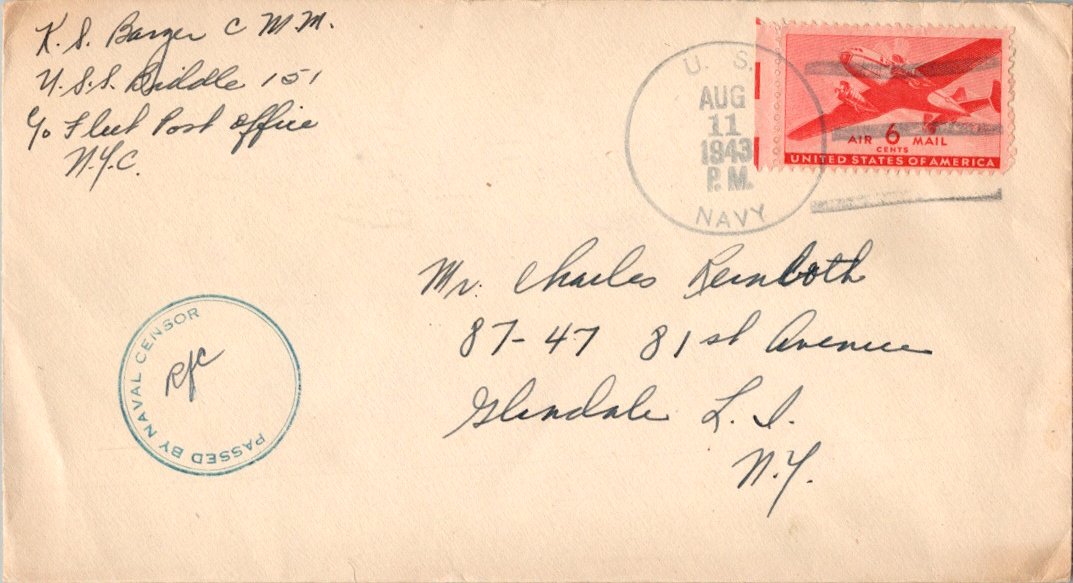 K. S. Barger C M M.
U.S.S. Biddle 151
c/o Fleet Post Office
N.Y.C.
U. S.
AUG
11
1943
P.M.
NAVY
AIR 6 MAIL
CENTS
UNITED STATES OF AMERICA
Mr. Charles Reinboth
87-47 81st Avenue
Glendale L. I.
N.Y.
PASSED BY NAVAL CENSOR
RJC